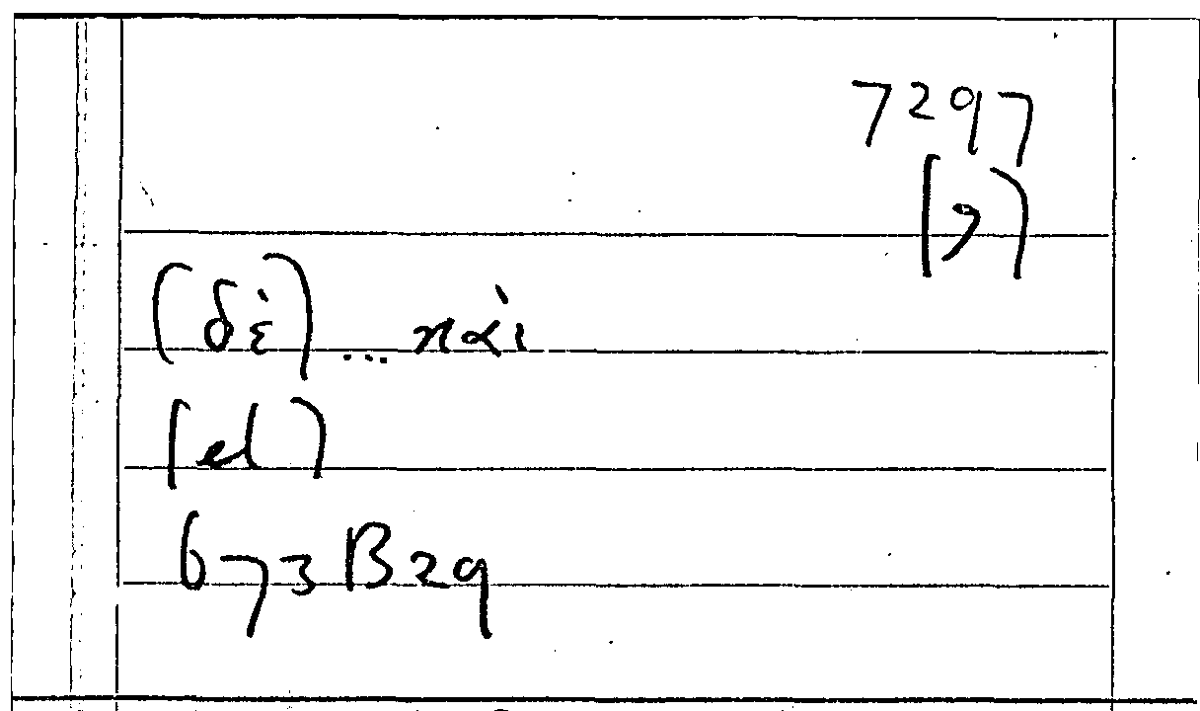 7297
(9)
(δὲ)... καὶ
(el)
673B29